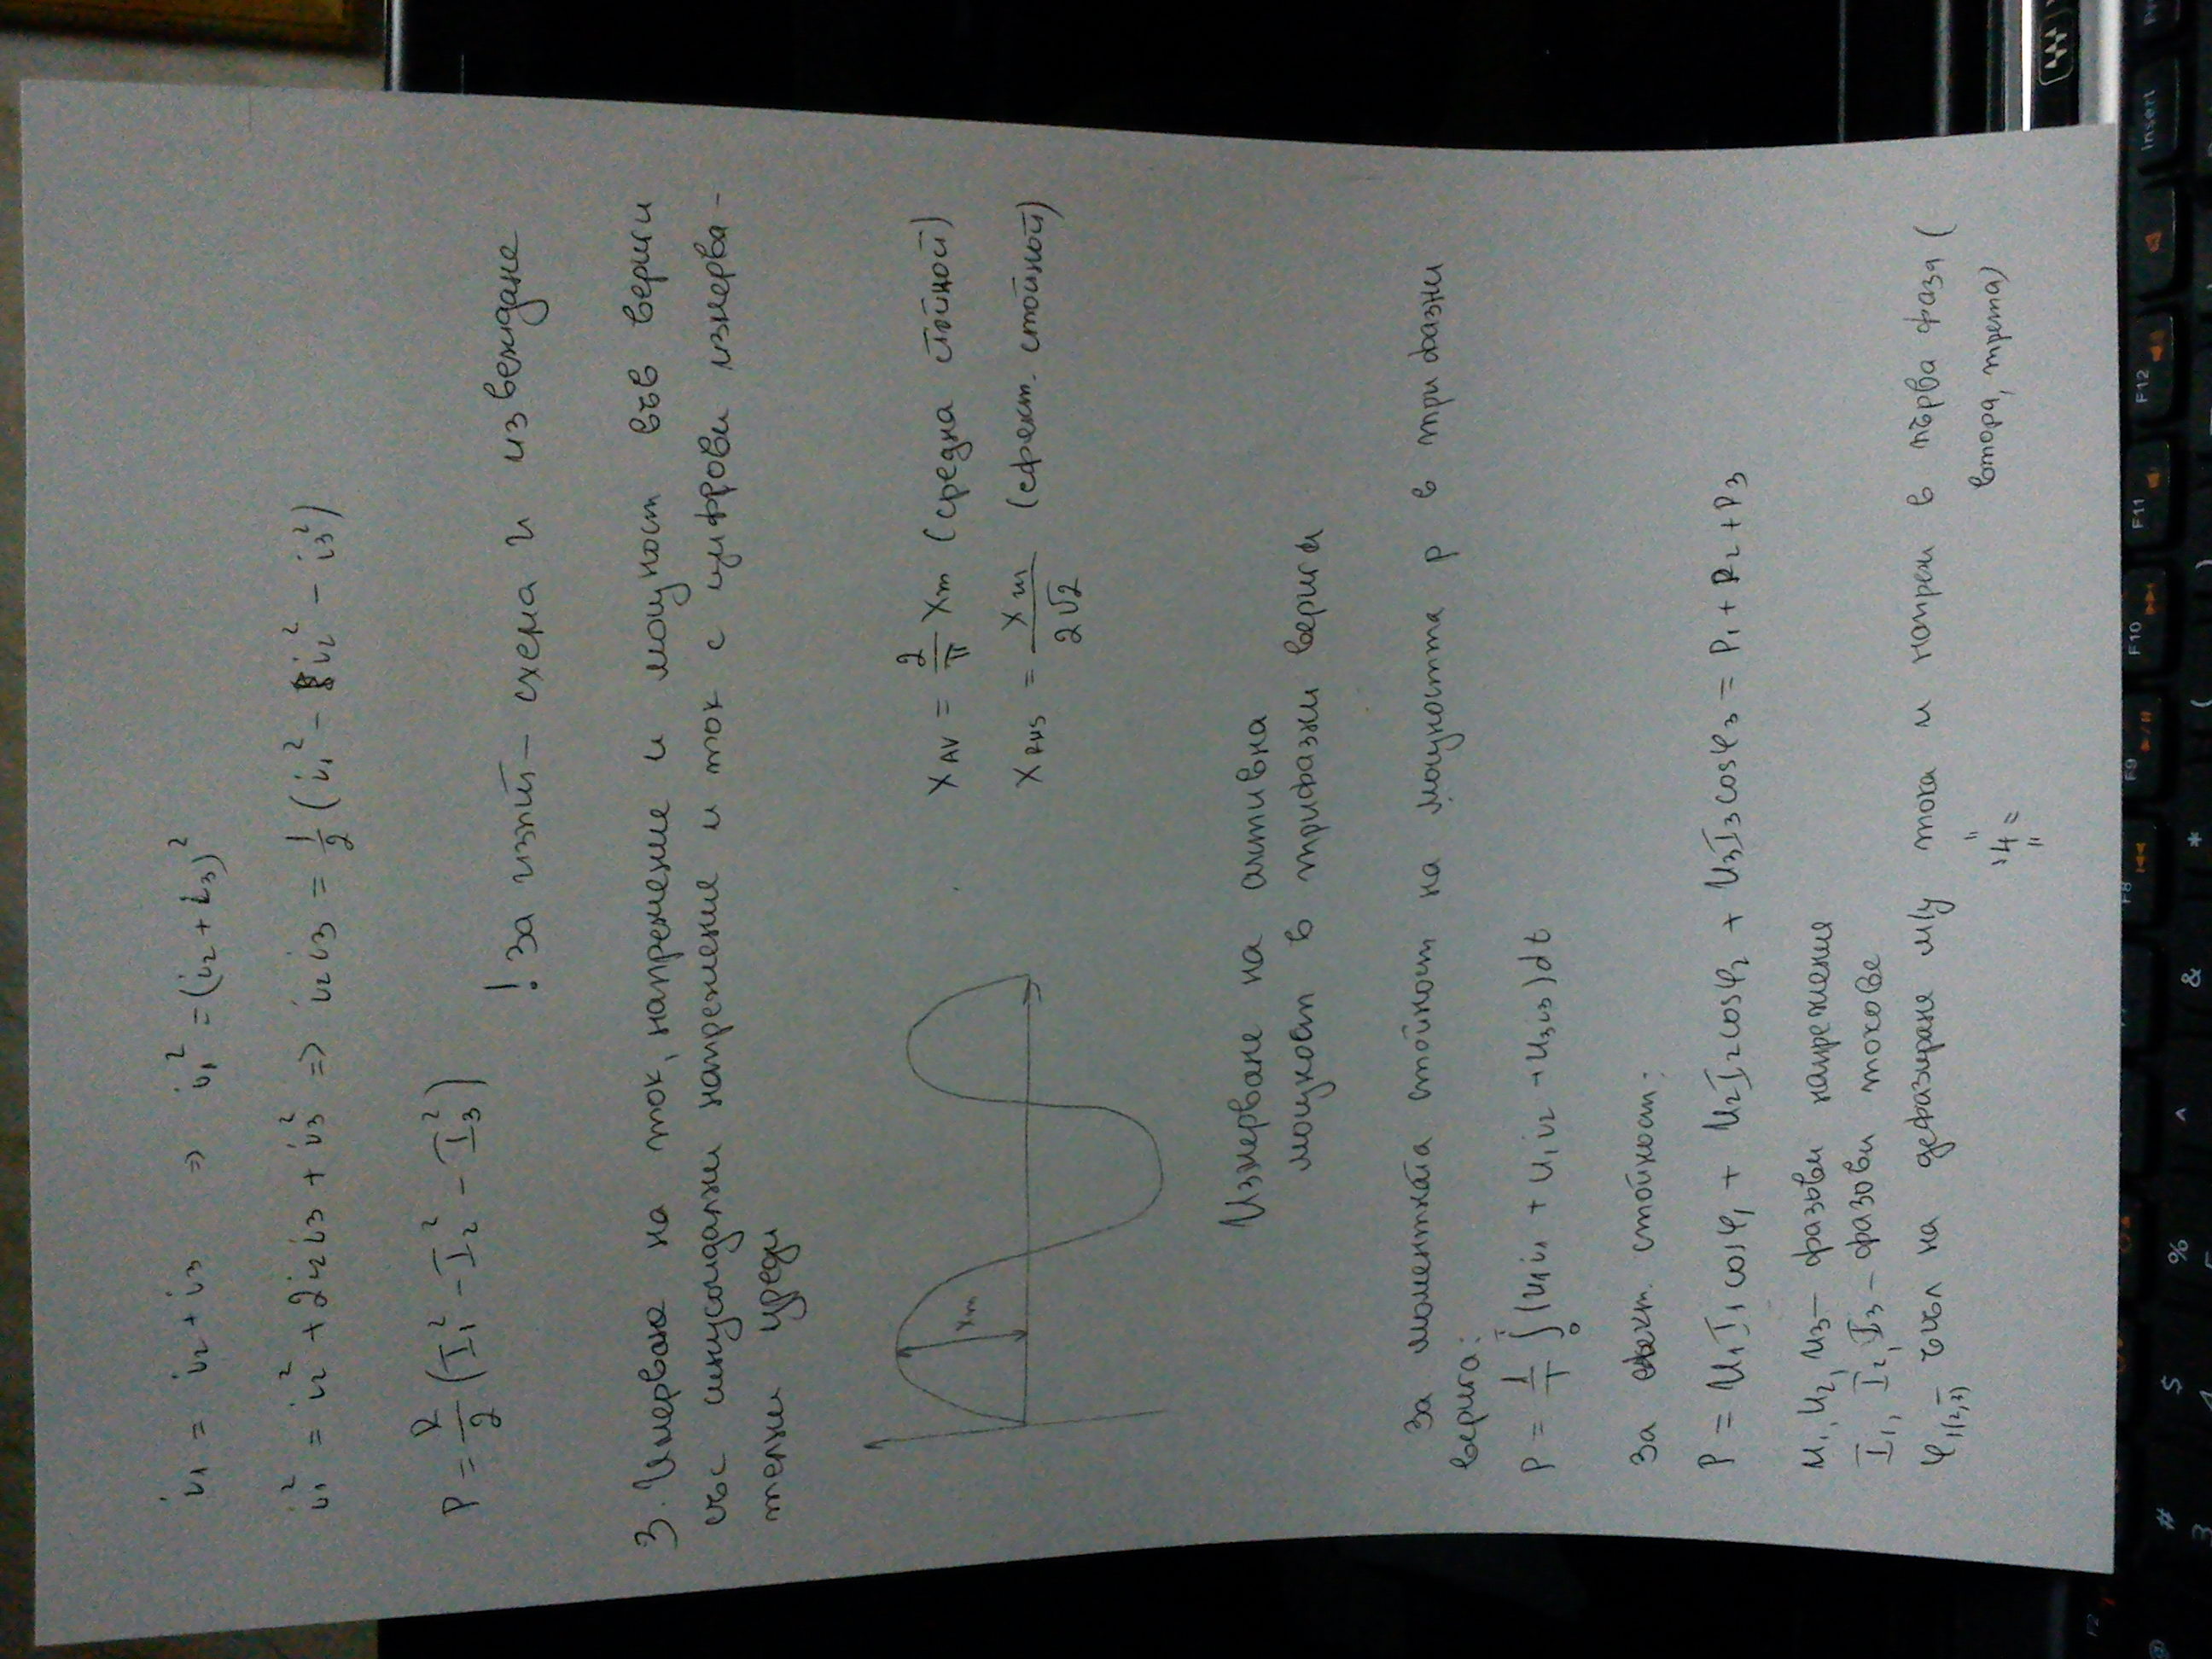 i₁ = i₂ + i₃ => i₁² = (i₂ + i₃)²
i₁² = i₂² + 2i₂i₃ + i₃² => i₂i₃ = 1/2 (i₁² - i₂² - i₃²)
P = R/2 (I₁² - I₂² - I₃²)
! За изпит - схема и извеждане
3. Измерване на ток, напрежение и мощност във вериги
със синусоидални напрежение и ток с цифрови измерва-
телни уреди
Xm
X AV = 2/π Xm (средна стойност)
X RMS = Xm / 2√2 (ефект. стойност)
Измерване на активна
мощност в трифазни верига
За моментната стойност на мощността p в три фазни
верига:
P = 1/T ∫₀ᵀ (u₁i₁ + u₁i₂ + u₃i₃) dt
За ефект. стойност:
P = U₁I₁cosφ₁ + U₂I₂cosφ₂ + U₃I₃cosφ₃ = P₁ + P₂ + P₃
U₁, U₂, U₃ - фазови напрежения
I₁, I₂, I₃ - фазови токове
φ₁(₂,₃) - ъгъл на дефазиране м/у тока и напреж в първа фаза (
втора, трета)
"4"
Insert
F12
F11
F10
F9
F8
F2
# $ % ^ & * (
3